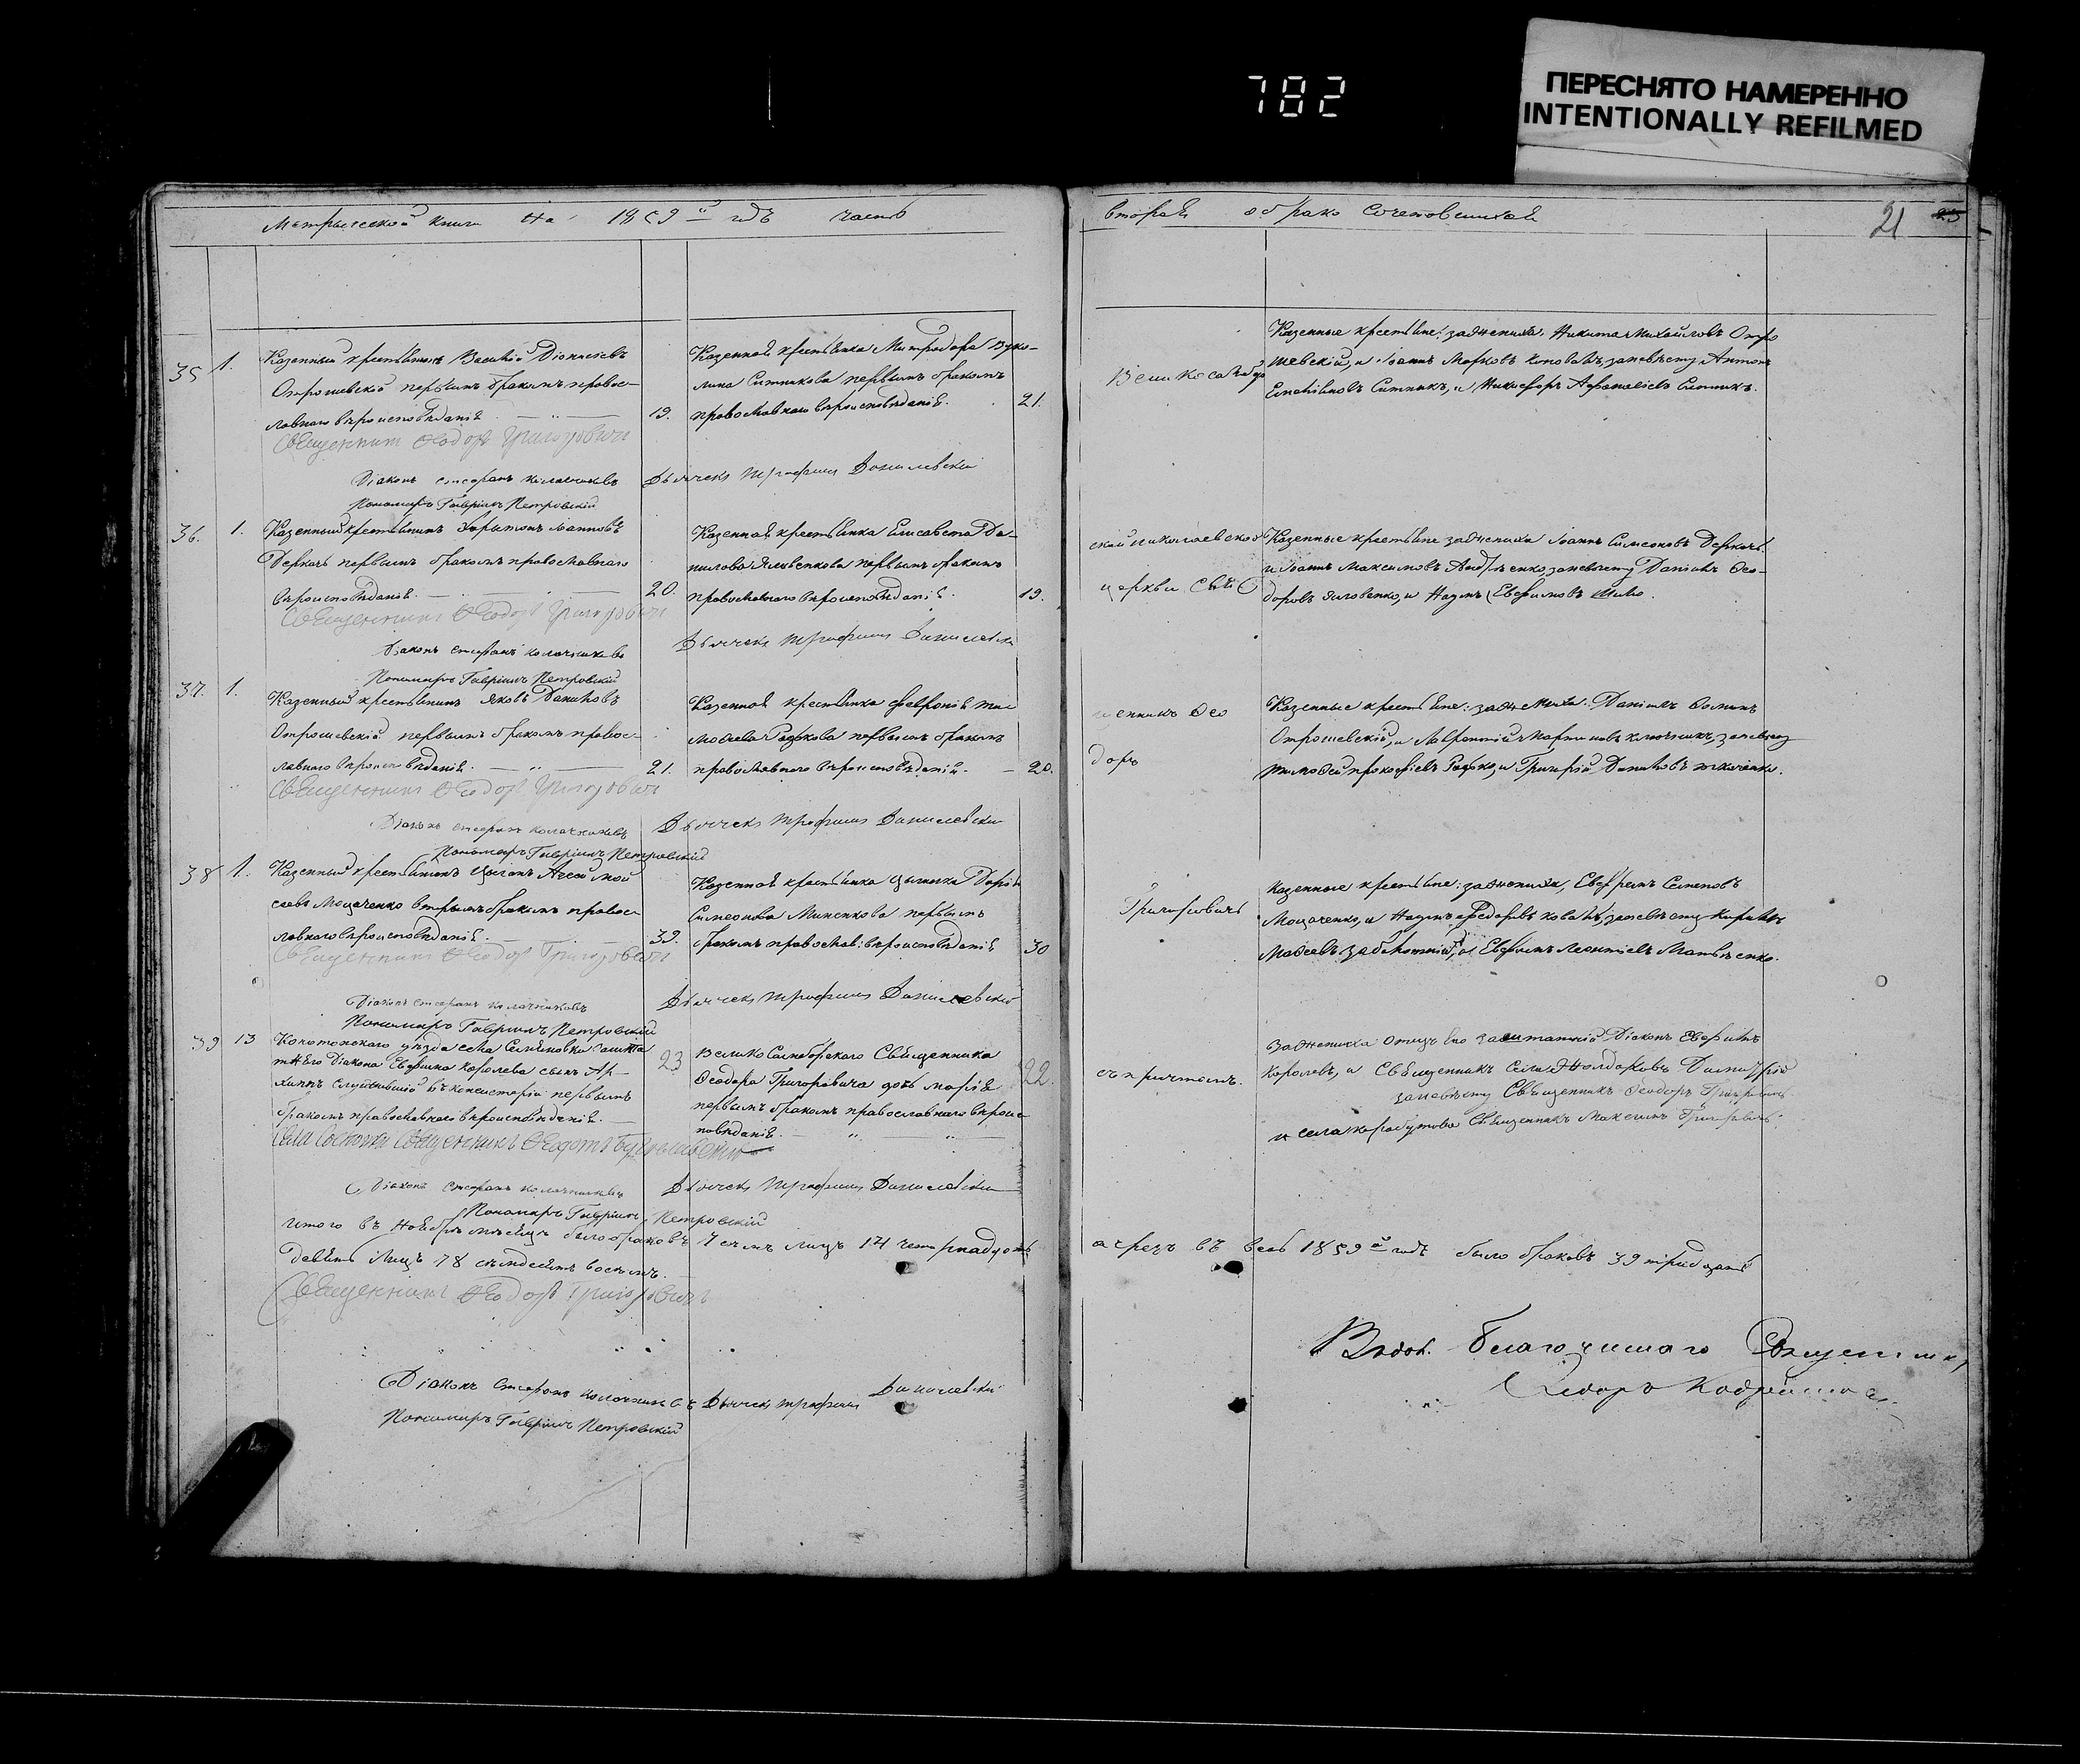 782
ПЕРЕСНЯТО НАМЕРЕННО
INTENTIONALLY REFILMED
Метрической книги на 1859й годъ часть
вторая о бракосочетавшихся
21
35 1. Казенный крестьянинъ Василій Діонисіевъ
Отрошевскій первымъ бракомъ правос-
лавнаго вѣроисповѣданія. 19.
Священникъ Ѳеодоръ Григоровичъ
Діаконъ Стефанъ Калачниковъ
Пономарь Гавріилъ Петровскій
Казенная крестьянка Митродора
Ситникова первымъ бракомъ
православнаго вѣроисповѣданія. 21.
Дьячекъ Трофимъ Данилевскій
Казенные крестьяне: за жениха: Никита Михайловъ Отро
шевскій, и Іоаннъ Марковъ Коваль, за невѣсту Антонъ
Ситникъ, и Никифоръ Афанасіевъ Ситникъ.
36. 1. Казенный крестьянинъ Харитонъ Іоанновъ
Деркачъ первымъ бракомъ православнаго
вѣроисповѣданія. 20.
Священникъ Ѳеодоръ Григоровичъ
Діаконъ Стефанъ Калачниковъ
Пономарь Гавріилъ Петровскій
Казенная крестьянка Елисавета Да-
нилова первымъ бракомъ
православнаго вѣроисповѣданія. 19.
Дьячекъ Трофимъ Данилевскій
ской Николаевской
церкви Свя
Казенные крестьяне за жениха Іоаннъ Симеоновъ Деркачъ
и Іоаннъ Максимовъ за невѣсту Даніилъ Ѳео-
доровъ и Наумъ Евфимовъ
37. 1. Казенный крестьянинъ Яковъ Даниловъ
Отрошевскій первымъ бракомъ правос-
лавнаго вѣроисповѣданія. 21.
Священникъ Ѳеодоръ Григоровичъ
Діаконъ Стефанъ Калачниковъ
Пономарь Гавріилъ Петровскій
Казенная крестьянка Февронія Ти
моѳеева первымъ бракомъ
православнаго вѣроисповѣданія. 20.
Дьячекъ Трофимъ Данилевскій
щенникъ Ѳео
доръ
Казенные крестьяне: за жениха: Даніилъ Ѳоминъ
Отрошевскій, и Лаврентій Мартиновъ Ключникъ, за невѣсту
Тимоѳей Прокофіевъ и Григорій Даниловъ
38 1. Казенный крестьянинъ цыганъ Алексѣй Мой
сеевъ Моцаченко вторымъ бракомъ правос-
лавнаго вѣроисповѣданія. 39.
Священникъ Ѳеодоръ Григоровичъ
Діаконъ Стефанъ Калачниковъ
Пономарь Гавріилъ Петровскій
Казенная крестьянка цыганка Дарія
Симеонова Миненкова первымъ
бракомъ православ: вѣроисповѣданія 30
Дьячекъ Трофимъ Данилевскій
Григоровичъ
Казенные крестьяне: за жениха, Евфремъ Семеновъ
Моцаченко, и Наумъ Федоровъ Коваль, за невѣсту Кириллъ
и Евфимъ Леонтіевъ Матвѣенко.
39 13 Конотопскаго уѣзда села Семяновки заштат
наго Діакона Евфима Королева сынъ
служившій въ консисторіи первымъ
бракомъ православнаго вѣроисповѣданія. 23
Священникъ
Діаконъ Стефанъ Калачниковъ
Пономарь Гавріилъ Петровскій
Велико Самборскаго Священника
Ѳеодора Григоровича дочь Марія
первымъ бракомъ православнаго вѣроис-
повѣданія. 22.
Дьячекъ Трофимъ Данилевскій
съ причтомъ.
за жениха отецъ его заштатный Діаконъ Евфимъ
Королевъ, и Священникъ села Жолдаковъ Димитрій
за невѣсту Священникъ Ѳеодоръ Григоровичъ
и села Карабутова Священникъ Максимъ Григоровичъ.
Итого въ Ноябрѣ мѣсяцѣ было браковъ 7 семь лицъ 14 четырнадцать
а чрезъ весь 1859й годъ было браковъ 39 тридцать
девять лицъ 78 семдесятъ восемь.
Священникъ Ѳеодоръ Григоровичъ
Діаконъ Стефанъ Калачниковъ Дьячекъ Трофимъ Данилевскій
Пономарь Гавріилъ Петровскій
Благочиннаго Священникъ